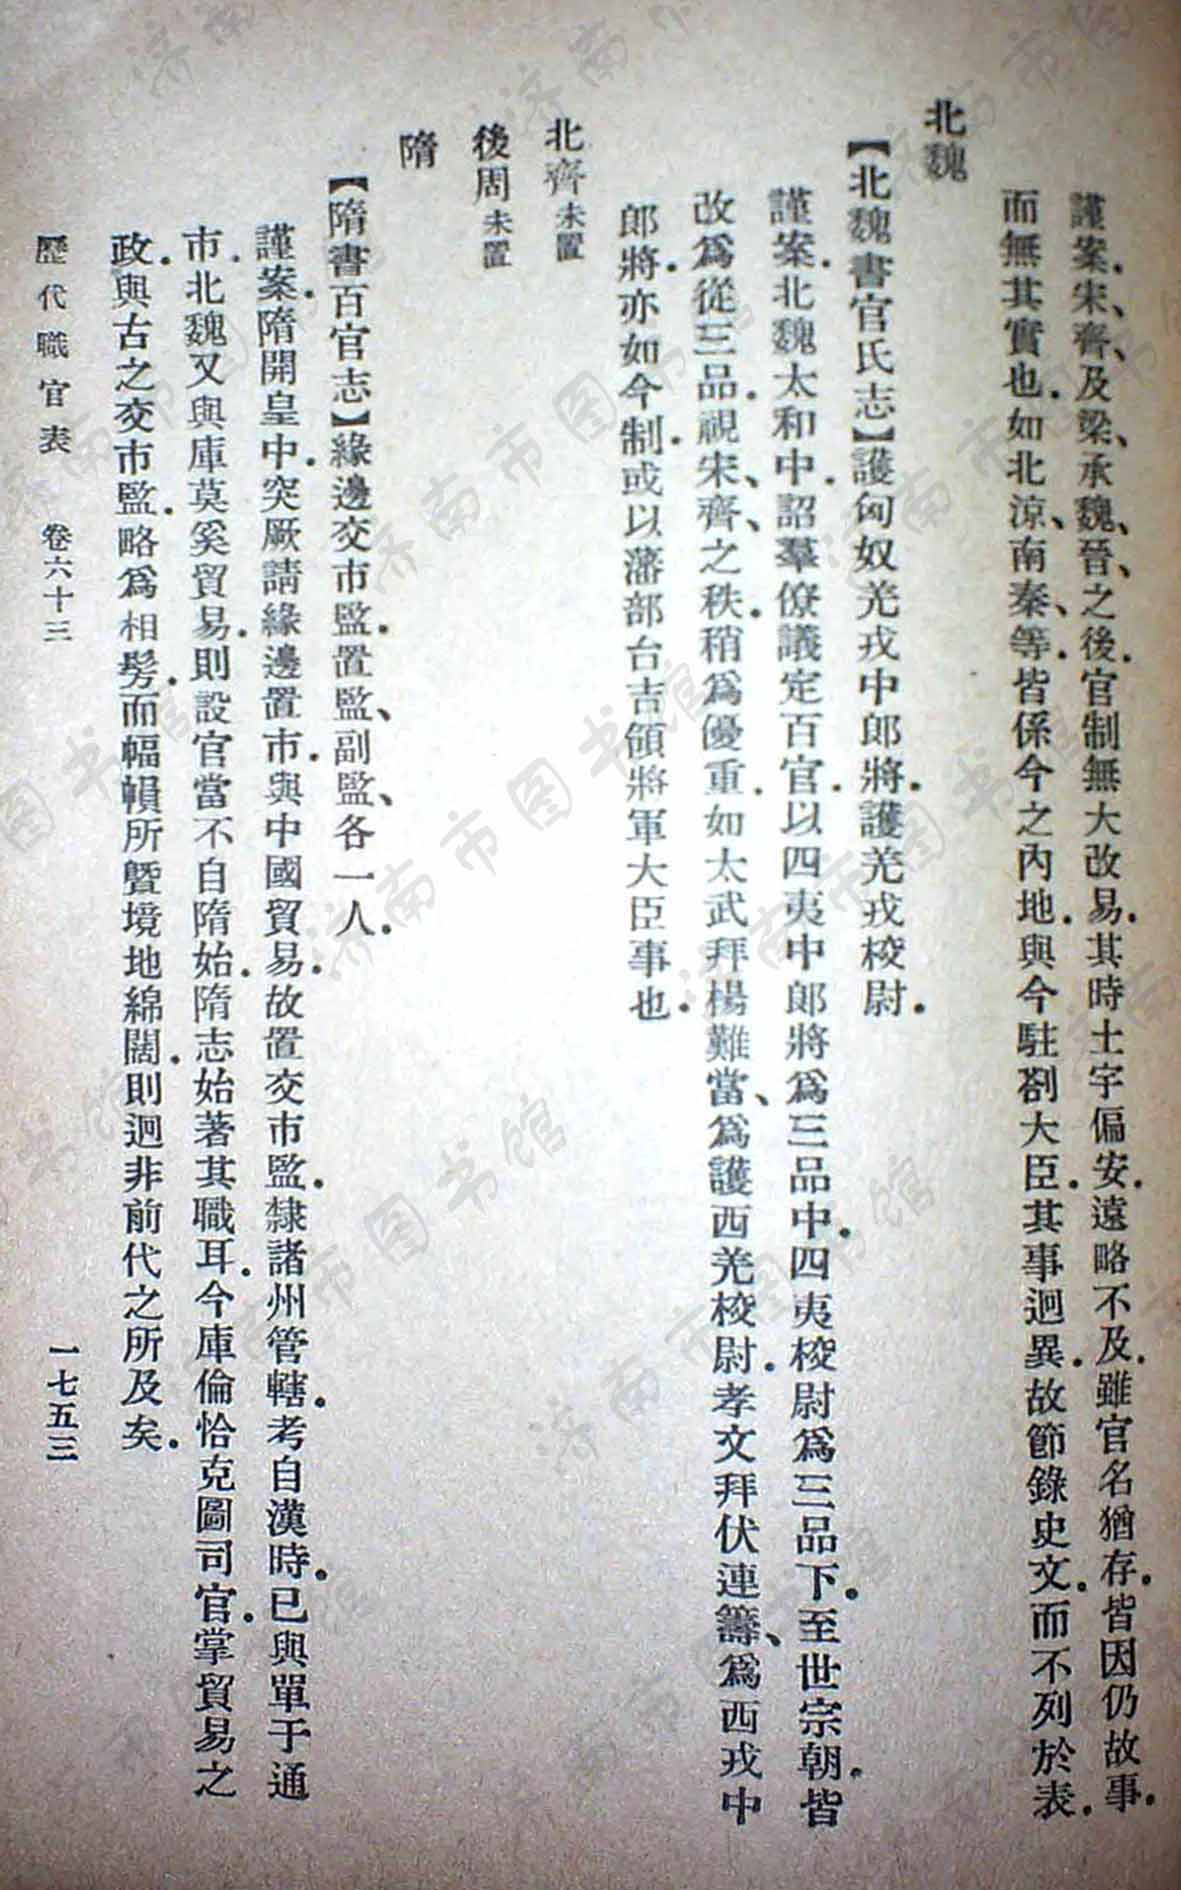 謹案宋、齊、及梁、承魏、晉、之後.官制無大改易.其時土宇偏安.遠略不及.雖官名猶存.皆因仍故事.
而無其實也.如北涼、南秦、等.皆係今之內地.與今駐劄大臣.其事迥異.故節錄史文.而不列於表.
北魏
【北魏書官氏志】護匈奴羌戎中郎將.護羌戎校尉.
謹案.北魏太和中.詔羣僚議定百官.以四夷中郎將爲三品中.四夷校尉爲三品下.至世宗朝.皆
改爲從三品.視宋、齊、之秩.稍爲優重.如太武拜楊難當、爲護西羌校尉.孝文拜伏連籌、爲西戎中
郎將.亦如今制.或以藩部台吉領將軍大臣事也.
北齊未置
後周未置
隋
【隋書百官志】緣邊交市監.置監、副監、各一人.
謹案.隋開皇中.突厥請緣邊置市.與中國貿易.故置交市監.隸諸州管轄.考自漢時.已與單于通
市.北魏又與庫莫奚貿易.則設官當不自隋始.隋志始著其職耳.今庫倫恰克圖司官.掌貿易之
政.與古之交市監.略爲相髣.而幅幀所曁.境地綿闊.則迥非前代之所及矣.
歷代職官表 卷六十三 一七五三
济南市图书馆